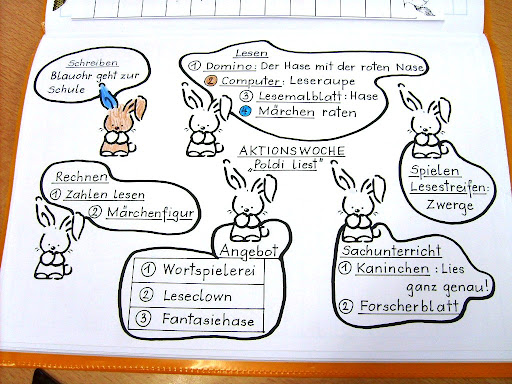 Schreiben
Blauohr geht zur
Schule
Lesen
① Domino: Der Hase mit der roten Nase
② Computer: Leseraupe
③ Lesemalblatt: Hase
④ Märchen raten
AKTIONSWOCHE
„Poldi liest"
Rechnen
① Zahlen lesen
② Märchenfigur
Spielen
Lesestreifen:
Zwerge
Angebot
① Wortspielerei
② Leseclown
③ Fantasiehase
Sachunterricht
① Kaninchen: Lies
ganz genau!
② Forscherblatt